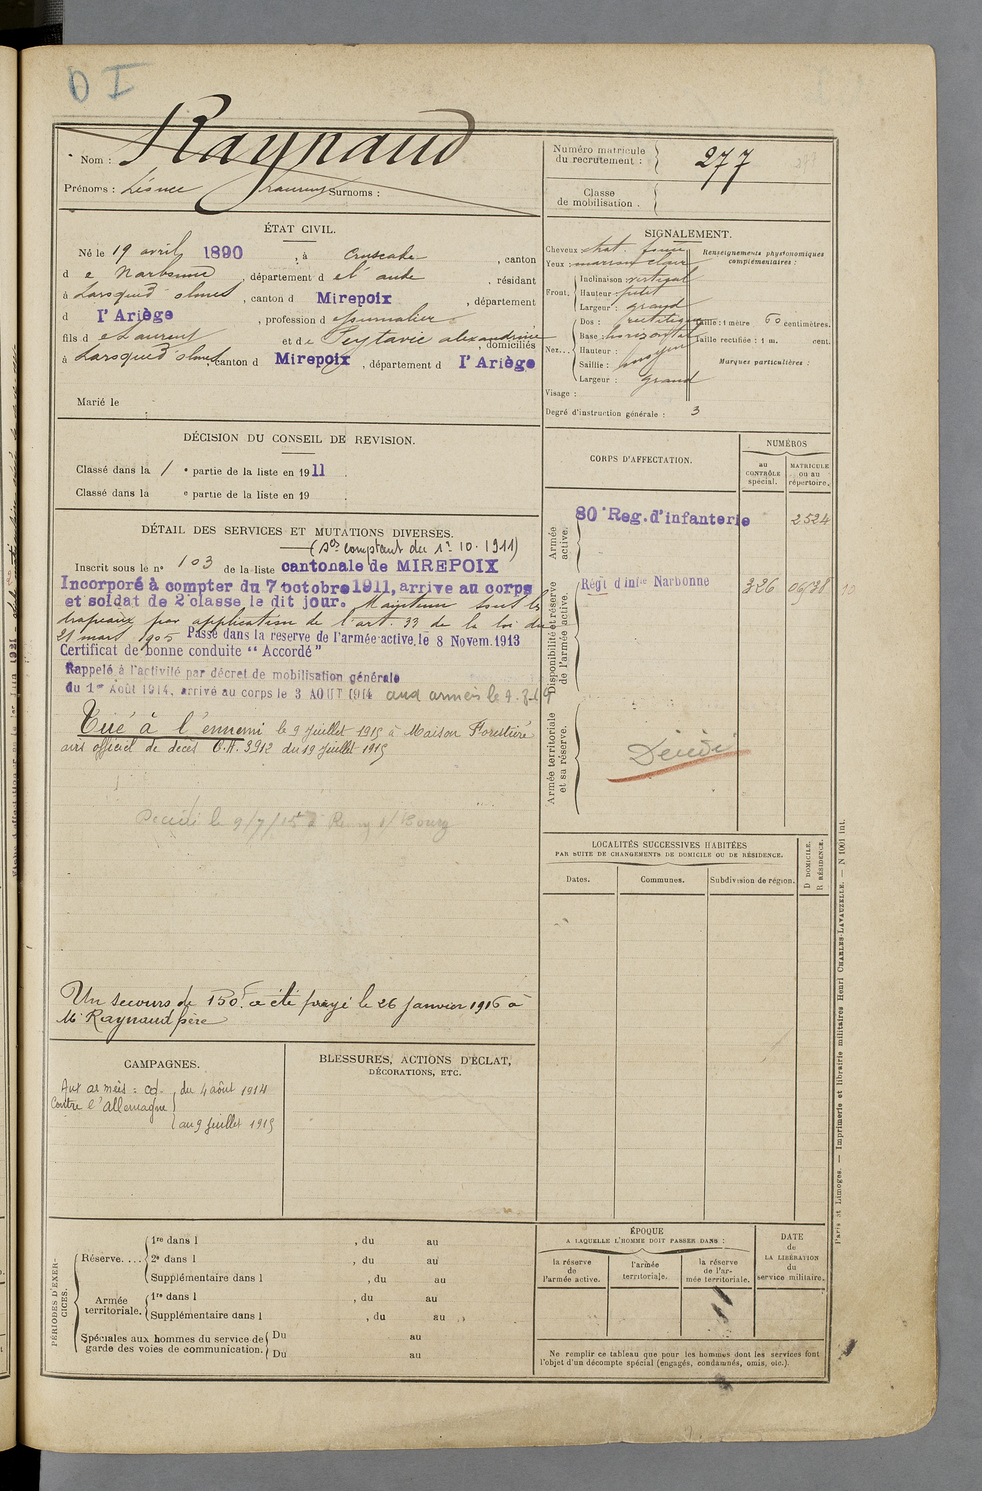 D I
Nom : Raynaud
Prénoms : Surnoms :
Numéro matricule
du recrutement : 277
Classe
de mobilisation .
ÉTAT CIVIL.
Né le 19 avril 1890 , à Cruscades , canton
d e Narbonne , département d e l'aude , résidant
à Laroqued'olmes , canton d Mirepoix , département
d l'Ariège , profession d
fils d e Laurent et de Peytavie alexandrine , domiciliés
à Laroqued'olmes , canton d Mirepoix , département d l'Ariège
Marié le
SIGNALEMENT.
Cheveux chat. foncé
Yeux : marron clair
Front. Inclinaison : vertical
Hauteur : petit
Largeur : grand
Nez... Dos : rectiligne
Base : horizontal
Hauteur :
Saillie : moyen
Largeur : grand
Visage :
Degré d'instruction générale : 3
Renseignements physionomiques
complémentaires :
Taille : 1 mètre 60 centimètres.
Taille rectifiée : 1 m. cent.
Marques particulières :
DÉCISION DU CONSEIL DE REVISION.
Classé dans la 1 e partie de la liste en 1911 .
Classé dans la e partie de la liste en 19 .
DÉTAIL DES SERVICES ET MUTATIONS DIVERSES.
(Scs comptant du 1er 10. 1911)
Inscrit sous le n° 103 de la liste cantonale de MIREPOIX
Incorporé à compter du 7 octobre 1911, arrive au corps
et soldat de 2e classe le dit jour. Maintenu sous les
drapeaux par application de l'art. 33 de la loi du
21 mars 1905 Passé dans la reserve de l'armée active, le 8 Novem. 1913
Certificat de bonne conduite "Accordé"
Rappelé à l'activité par décret de mobilisation générale
du 1er Août 1914, arrivé au corps le 3 AOUT 1914 aux armées le
Tué à l'ennemi le 9 juillet 1915 à Maison Forestière
avis officiel de décès C.A. 3912 du 19 juillet 1915
Décédé le 9/7/15 à
Un secours de 150f a été payé le 26 janvier 1916 à
Mr Raynaud père
CORPS D'AFFECTATION.
NUMÉROS
au
CONTRÔLE
spécial.
MATRICULE
ou au
répertoire.
Armée
active.
80e Reg. d'infanterie 2524
Disponibilité et réserve
de l'armée active.
Régt d'infie Narbonne 326
Armée territoriale
et sa réserve.
Décédé
LOCALITÉS SUCCESSIVES HABITÉES
PAR SUITE DE CHANGEMENTS DE DOMICILE OU DE RÉSIDENCE.
D DOMICILE.
R RÉSIDENCE.
Dates. Communes. Subdivision de région.
CAMPAGNES.
Aux armées : cd. du 4 août 1914
Contre l'allemagne
au 9 juillet 1915
BLESSURES, ACTIONS D'ÉCLAT,
DÉCORATIONS, ETC.
PÉRIODES D'EXER-
CICES.
Réserve.... 1re dans l , du au
2e dans l , du au
Supplémentaire dans l , du au
Armée
territoriale. 1re dans l , du au
Supplémentaire dans l , du au
Spéciales aux hommes du service de
garde des voies de communication. Du au
Du au
ÉPOQUE
A LAQUELLE L'HOMME DOIT PASSER DANS :
la réserve
de
l'armée active.
l'armée
territoriale.
la réserve
de l'ar-
mée territoriale.
DATE
de
LA LIBÉRATION
du
service militaire.
Ne remplir ce tableau que pour les hommes dont les services font
l'objet d'un décompte spécial (engagés, condamnés, omis, etc.).
Paris et Limoges. — Imprimerie et librairie militaires Henri CHARLES-LAVAUZELLE. — N 1001 int.